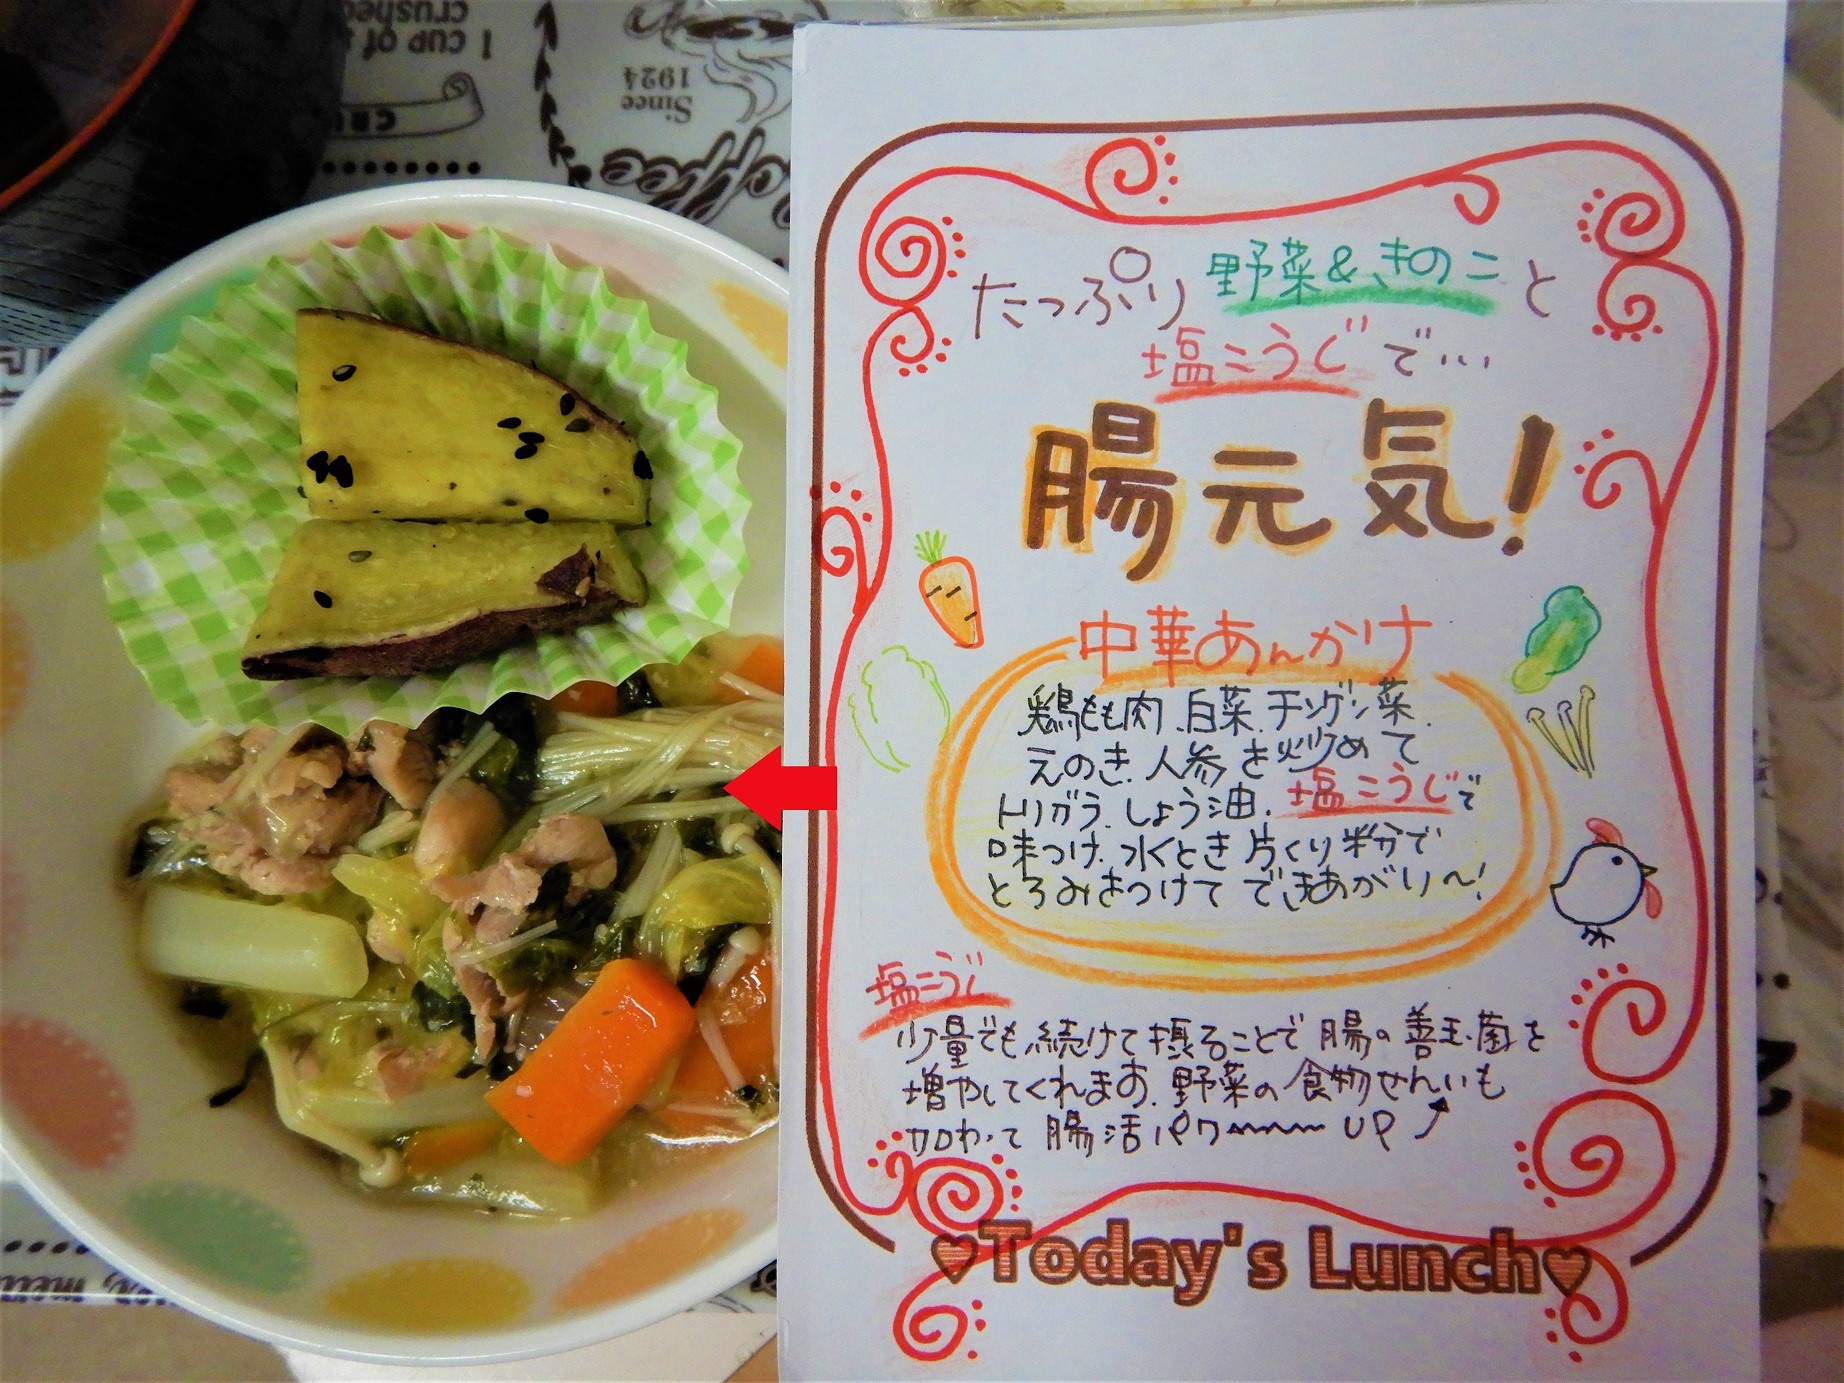 1 CUP OF
crushed
CRU
Since
1924
Coffee
たっぷり 野菜&きのこと
塩こうじで…
腸元気!
中華あんかけ
鶏もも肉.白菜.チンゲン菜.
えのき.人参を炒めて
トリガラ.しょう油.塩こうじで
味つけ.水とき片くり粉で
とろみをつけてできあがり〜!
塩こうじ
少量でも続けて摂ることで腸の善玉菌を
増やしてくれます.野菜の食物せんいも
加わって腸活パワ〜〜〜UP↗
♥Today's Lunch♥